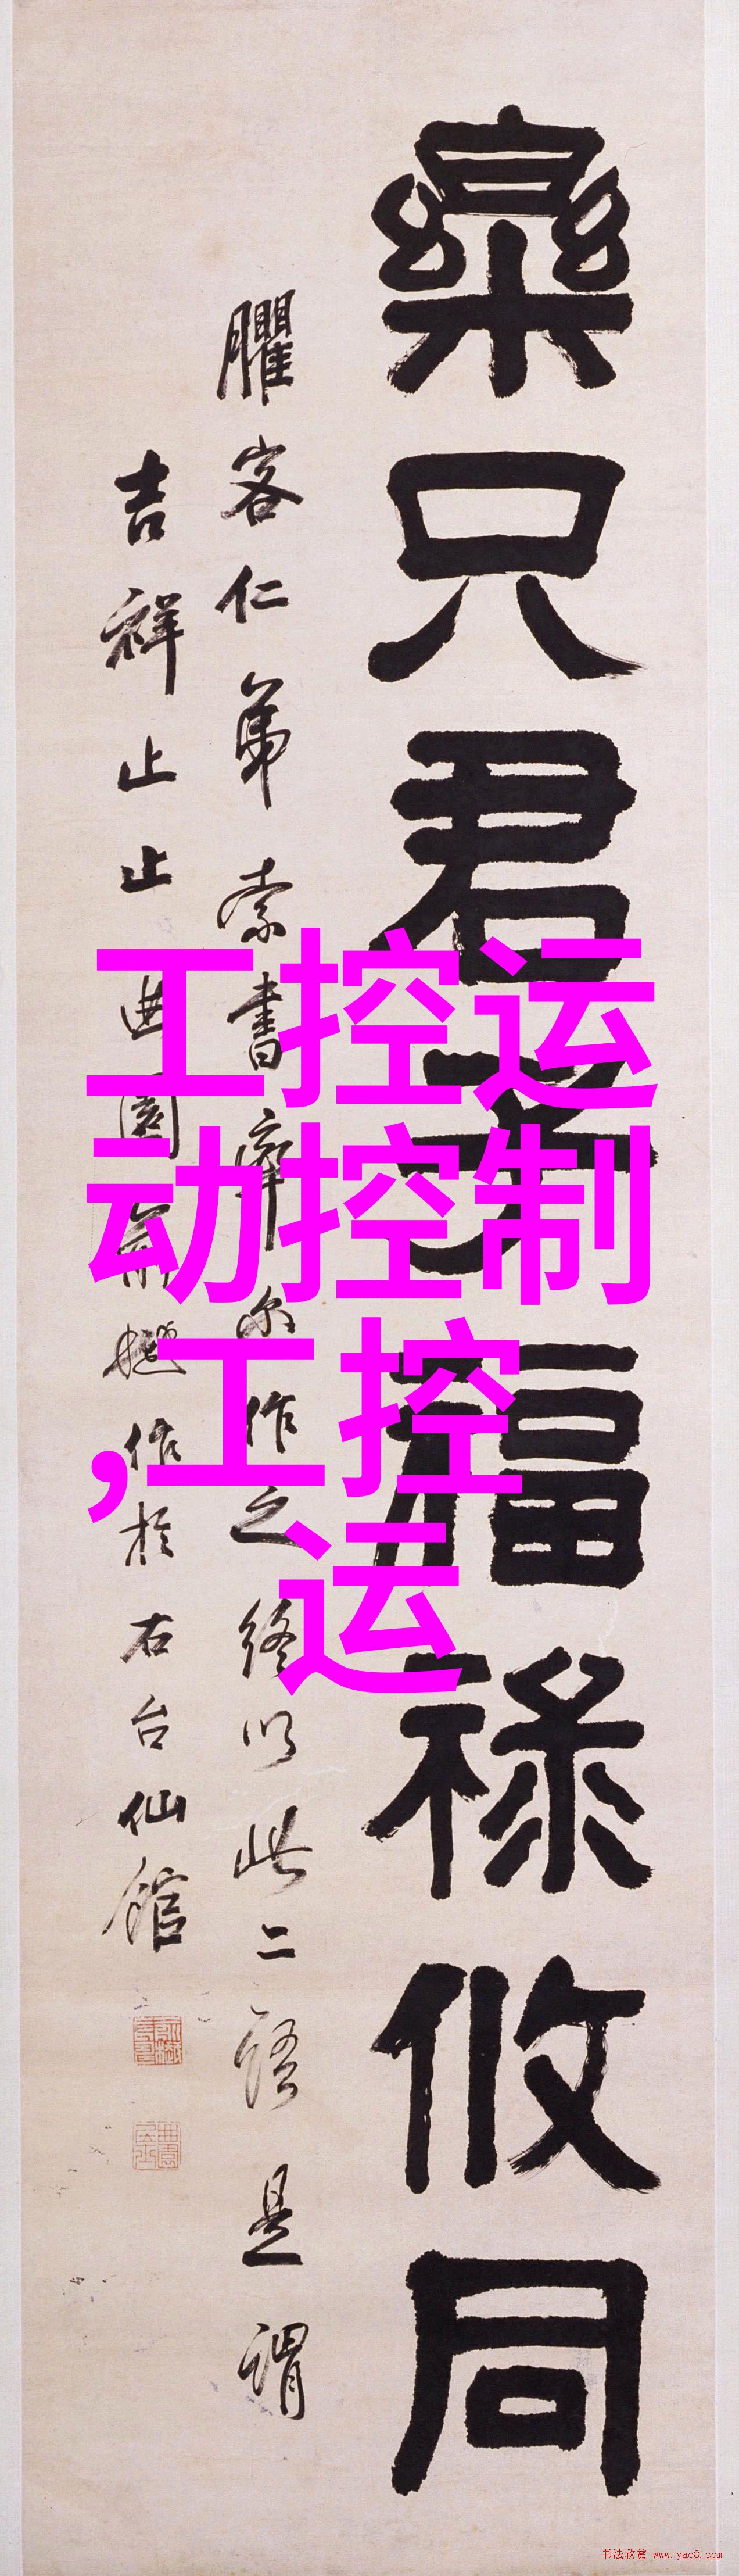 樂只君子福祿攸同
臞客仁弟索書率尔作之終以此二語是謂
吉祥止止曲園俞樾作於右台仙館
工控运
动控制
,工控
运
书法欣赏 www.yac8.com